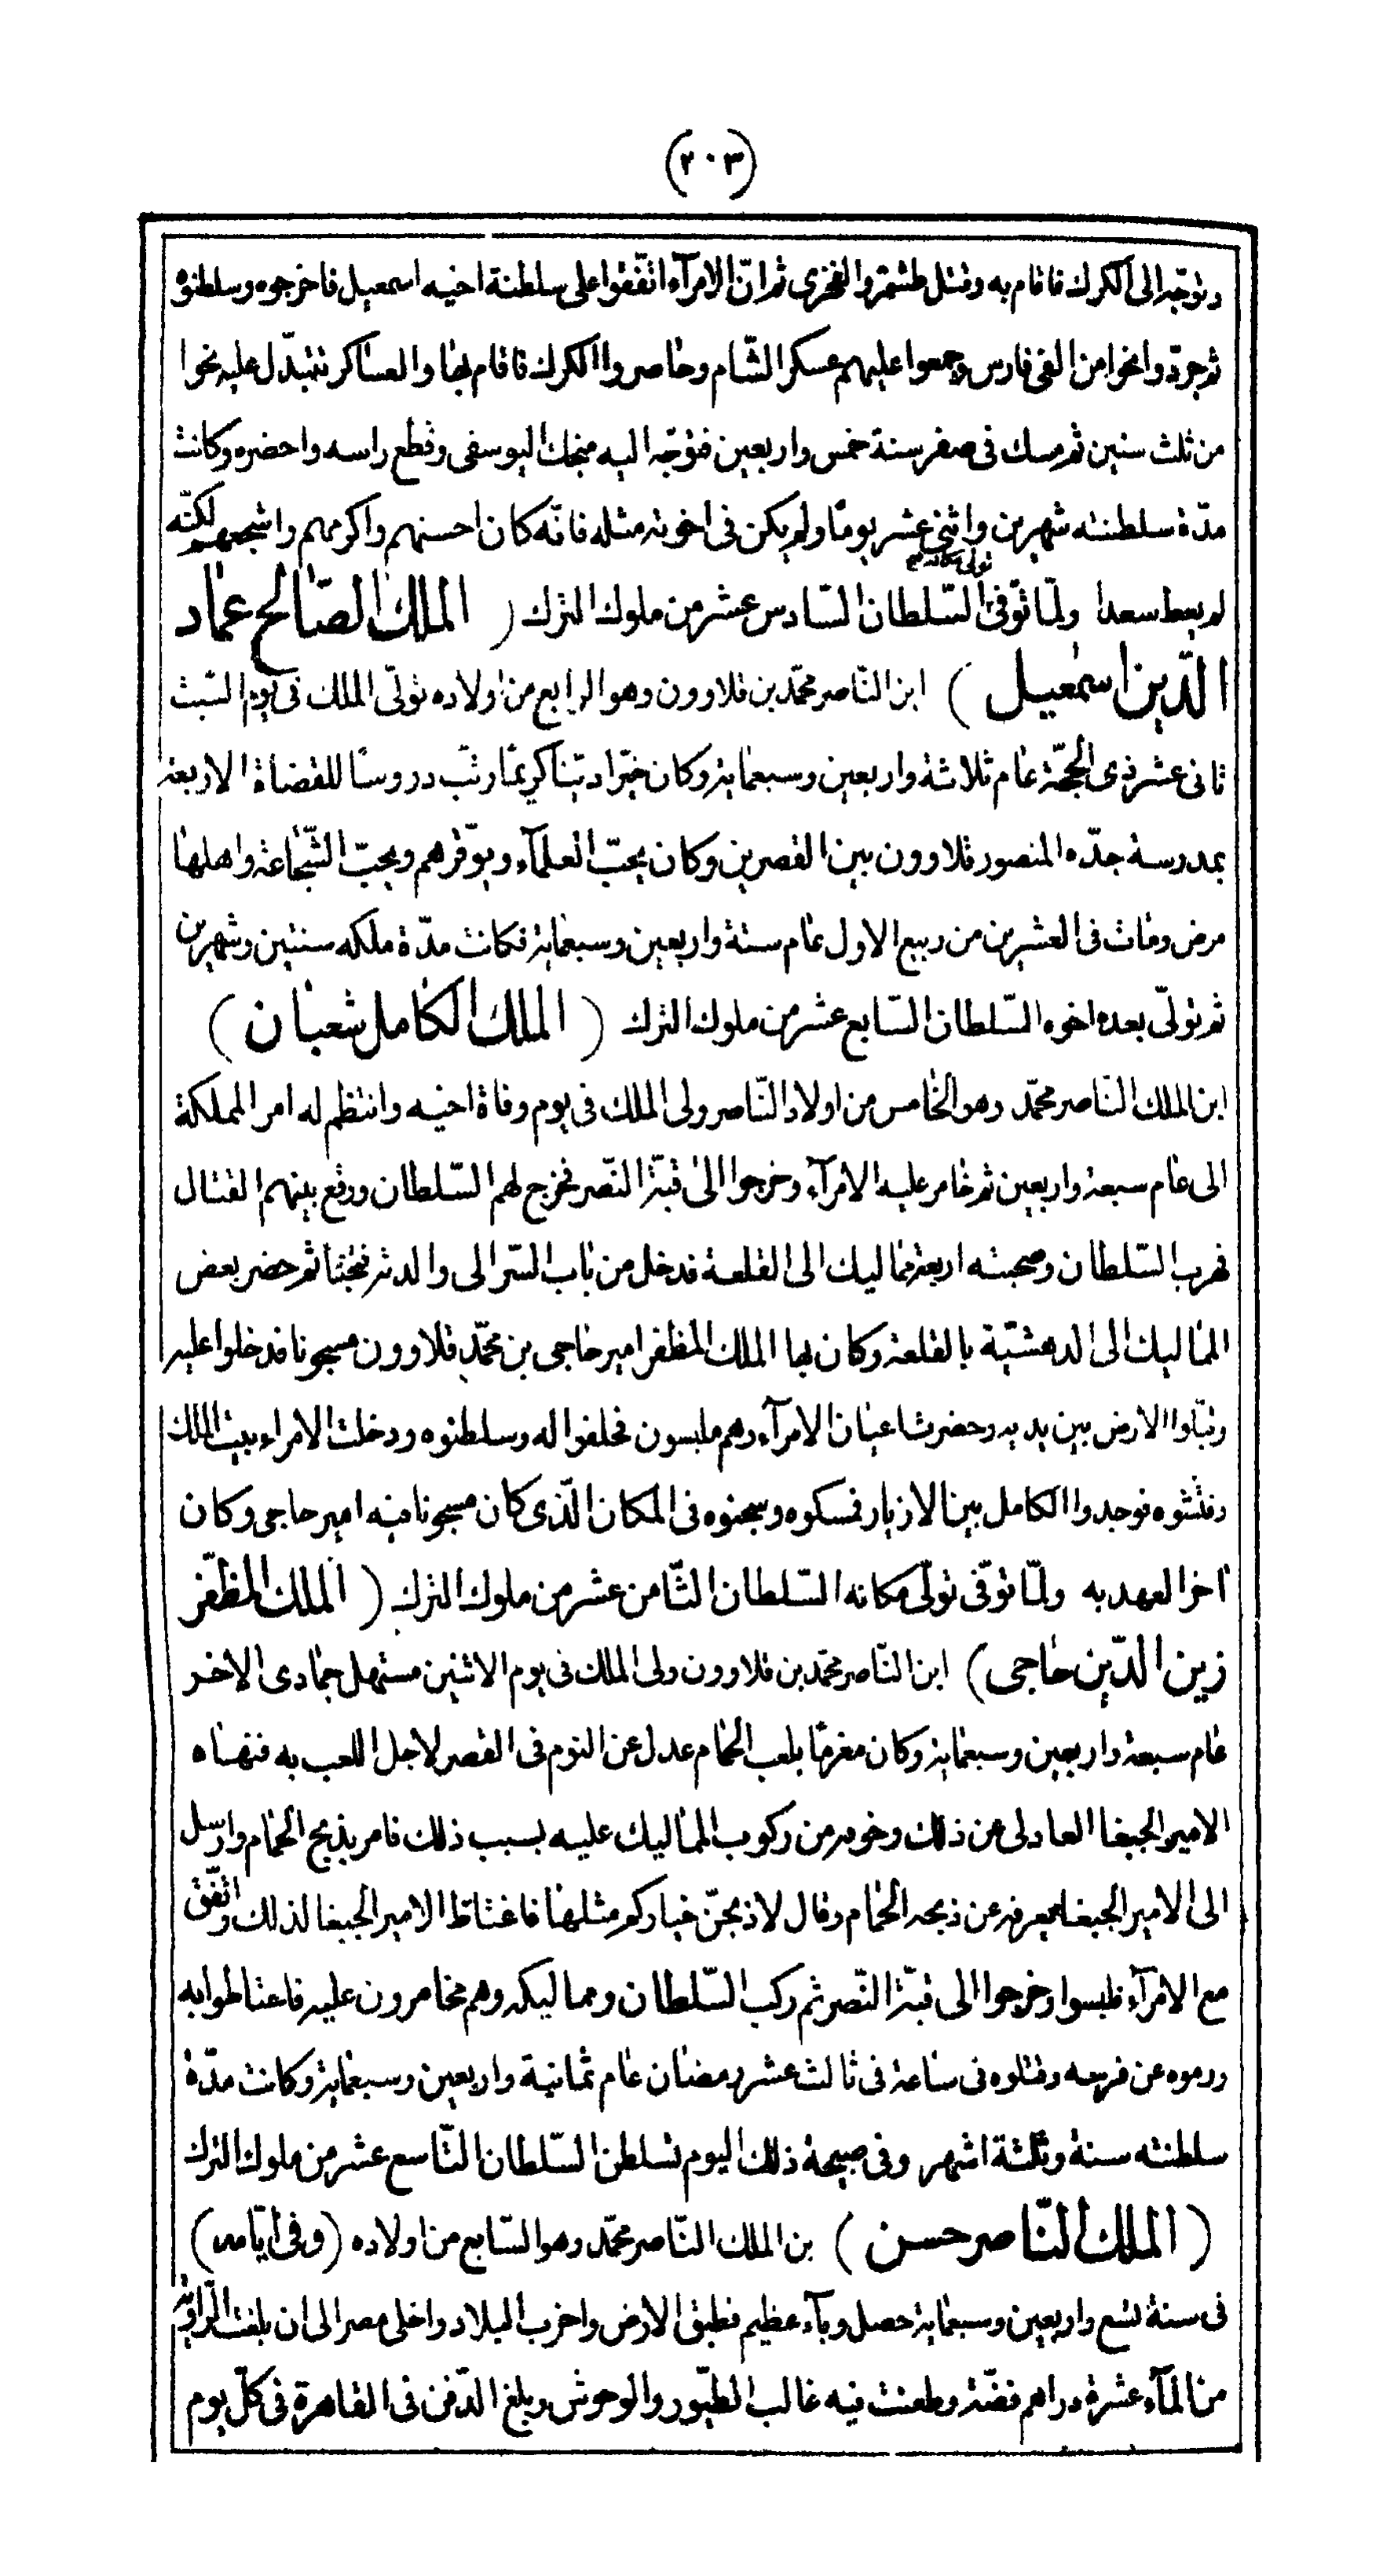 (٢٠٣)
وتوجّه الى الكرك فاقام به وقتل طشتمر والفخرى ثم انّ الامرآء اتّفقوا على سلطنة اخيه اسمعيل فاخرجوه وسلطنوه
ثم جرّدوا نحوا من الفى فارس وجمعوا عليهم عسكر الشّام وحاصروا الكرك فاقام بها والعساكر تتبدّل عليه نحوا
من ثلث سنين ثم مسك فى صفر سنة خمس واربعين فتوجّه اليه منجك اليوسفى وقطع راسه واحضره وكانت
مدّة سلطنته شهرين واثنى عشر يومًا ولم يكن فى اخوته مثله فانّه كان احسنهم واكرمهم واشجعهم لكنّه
لم يعط سعدا ولمّا توفّى تولى مكانه السّلطان السّادس عشر من ملوك الترك ( الملك الصّالح عماد
الدّين اسمعيل ) ابن النّاصر محمّد بن قلاوون وهو الرابع من اولاده تولّى الملك فى يوم السّبت
ثانى عشر ذى الحجّة عام ثلاثة واربعين وسبعماية وكان خيّرا ديّنا كريمًا رتّب دروسًا للقضاة الاربعة
بمدرسة جدّه المنصور قلاوون بين القصرين وكان يحبّ العلمآء ويوقّرهم ويحبّ الشّجاعة واهلها
مرض ومات فى العشرين من ربيع الاول عام ستة واربعين وسبعماية فكانت مدّة ملكه سنتين وشهرين
ثم تولّى بعده اخوه السّلطان السّابع عشر من ملوك الترك ( الملك الكامل شعبان )
ابن الملك النّاصر محمّد وهو الخامس من اولاد النّاصر ولى الملك فى يوم وفاة اخيه وانتظم له امر المملكة
الى عام سبعة واربعين ثم خامر عليه الامرآء وخرجوا الى قبّة النّصر فخرج لهم السّلطان ووقع بينهم القتال
فهرب السّلطان وصحبته اربعة مماليك الى القلعة فدخل من باب السّر الى والدته فخبّئا ثم حضر بعض
المماليك الى الدهشيّة بالقلعة وكان بها الملك المظفر امير حاجى بن محمّد قلاوون مسجونا فدخلوا عليه
وقبّلوا الارض بين يديه وحضرت اعيان الامرآء وهم ملبسون فحلفوا له وسلطنوه ودخلت الامراء بيت الملك
وفتّشوه فوجدوا الكامل بين الازيار فمسكوه وسجنوه فى المكان الّذى كان مسجونا فيه امير حاجى وكان
اخر العهد به ولمّا توفّى تولّى مكانه السّلطان الثّامن عشر من ملوك الترك ( الملك المظفّر
زين الدّين حاجى ) ابن النّاصر محمّد بن قلاوون ولى الملك فى يوم الاثنين مستهل جمادى الاخر
عام سبعة واربعين وسبعماية وكان مغرمًا بلعب الحمام عدل عن النوم فى القصر لاجل اللعب به فنهاه
الامير الجبغا العادلى عن ذلك وخوفه من ركوب المماليك عليه بسبب ذلك فامر بذبح الحمام وارسل
الى الامير الجبغا يعرفه عن ذبحه الحمام وقال لاذبحنّ خياركم مثلها فاغتاظ الامير الجبغا لذلك واتّفق
مع الامرآء فلبسوا وخرجوا الى قبّة النّصر ثم ركب السّلطان ومماليكه وهم مخامرون عليه فاعتالطوا به
ورموه عن فرسه وقتلوه فى ساعة فى ثالث عشر رمضان عام ثمانية واربعين وسبعماية وكانت مدّة
سلطنته سنة وثلثة اشهر وفى صبيحة ذلك اليوم تسلطن السّلطان التّاسع عشر من ملوك الترك
( الملك النّاصر حسن ) بن الملك النّاصر محمّد وهو السّابع من اولاده ( وفى ايّامه )
فى سنة تسع واربعين وسبعماية حصل وبآء عظيم فطبق الارض واخرب البلاد واخلى مصر الى ان بلغت الراوية
من المآء عشرة دراهم فضّة وطعنت فيه غالب الطّيور والوحوش وبلغ الدّفن فى القاهرة فى كلّ يوم